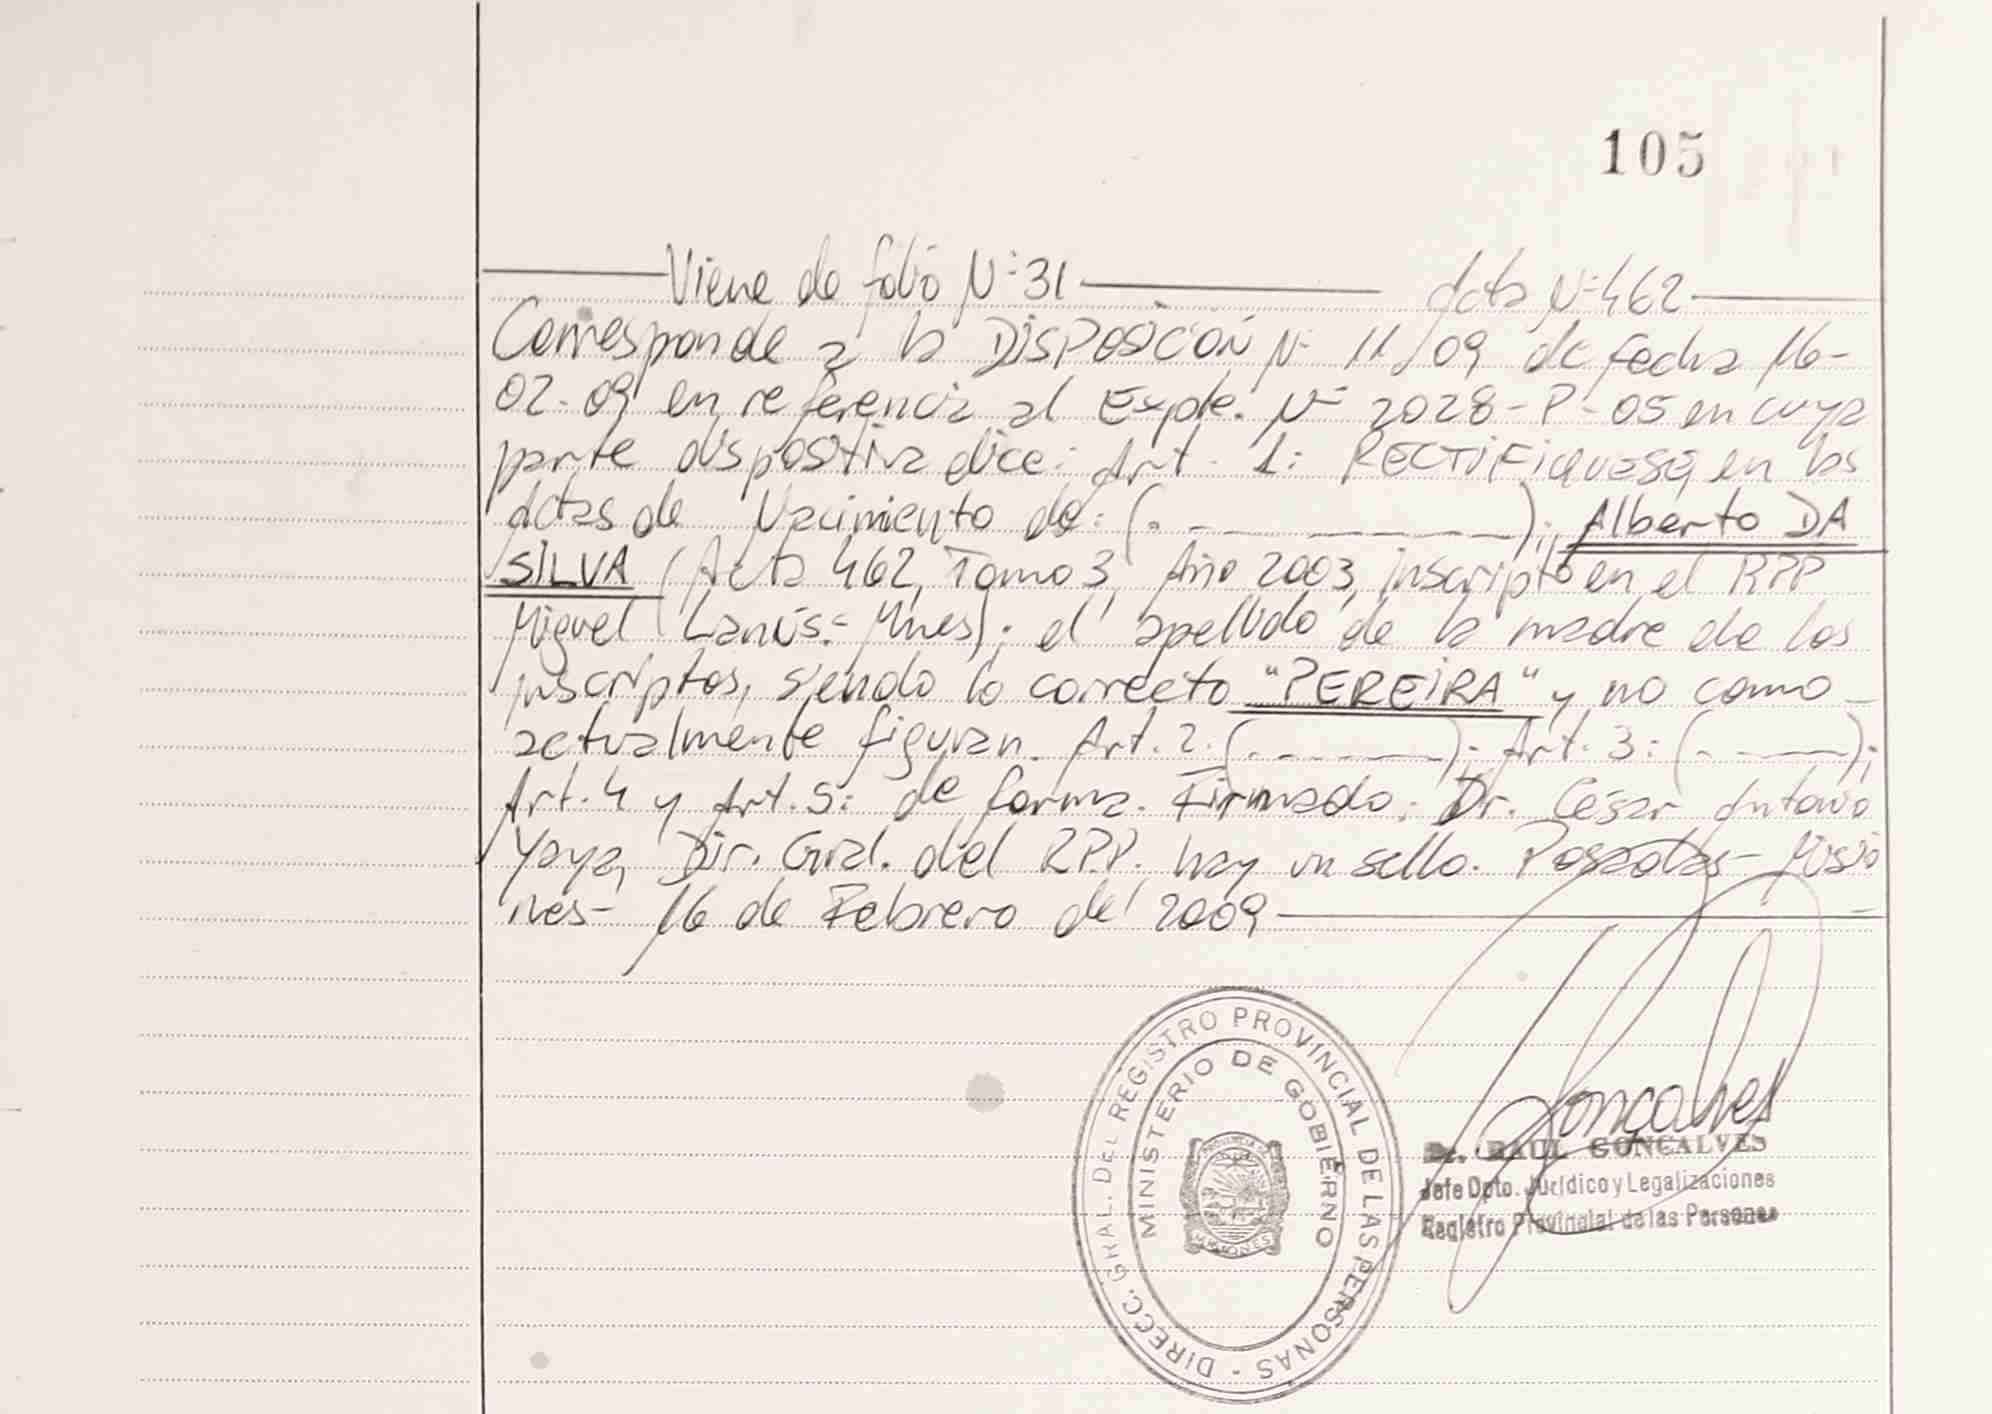 105
Viene de folio Nº 31 Acta Nº 462
Corresponde a la DISPOSICIÓN Nº 11/09 de fecha 16-
02-09 en referencia al Expte. Nº 2028-P-05 en cuya
parte dispositiva dice: Art. 1: RECTIFIQUESE, en las
Actas de Nacimiento de: (. - ———); Alberto DA
SILVA (Acta 462, Tomo 3, Año 2003, inscripto en el RPP
Miguel Lanús.- Mnes); el apellido de la madre de los
inscriptos, siendo lo correcto "PEREIRA" y no como
actualmente figuran. Art. 2: (. - ———); Art. 3: (. - ———);
Art. 4 y Art. 5: de forma. Firmado: Dr. César Antonio
Yaya, Dir. Gral. del RPP. hay un sello. Posadas- Misio
nes- 16 de Febrero del 2009
DIRECC. GRAL. DEL REGISTRO PROVINCIAL DE LAS PERSONAS -
MINISTERIO DE GOBIERNO
PROVINCIA DE
MISIONES
Gonçalves
Dr. RAUL GONCALVES
Jefe Dpto. Jurídico y Legalizaciones
Registro Provincial de las Personas